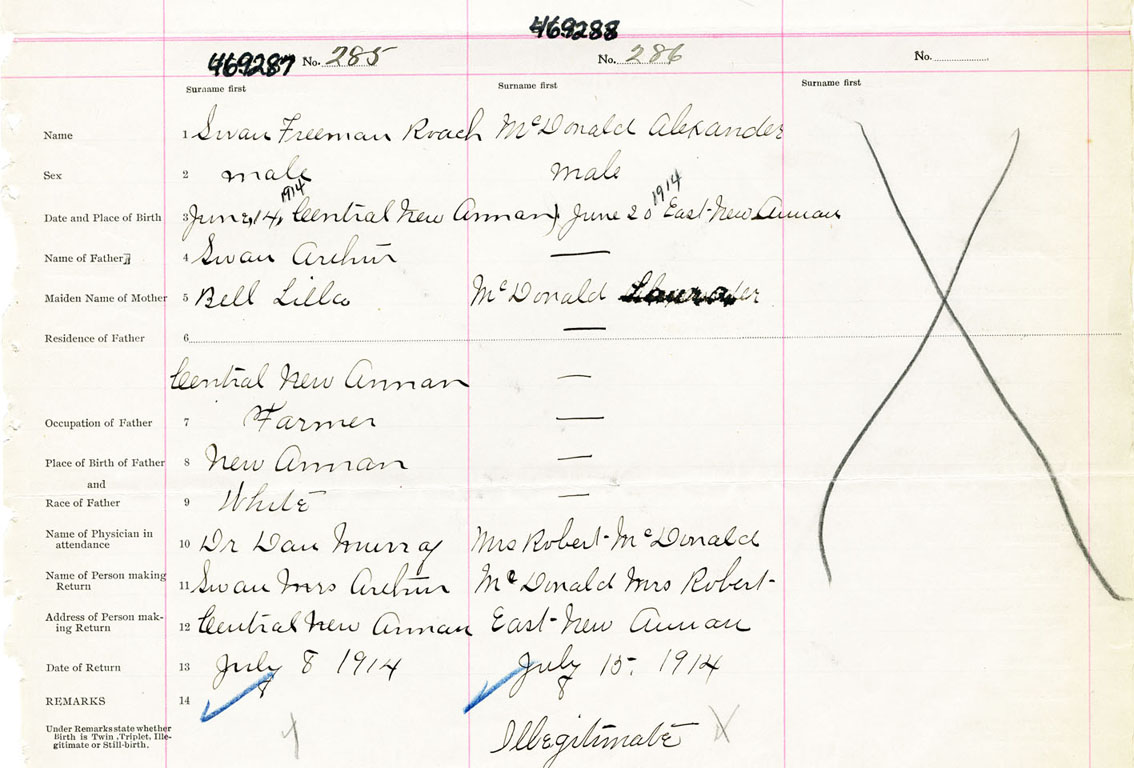 469288
469287 No. 285 No. 286 No.
Surname first Surname first Surname first
Name 1 Swan Freeman Roach McDonald Alexander
Sex 2 male male
1914 1914
Date and Place of Birth 3 June 14, Central New Annan June 20 East New Annan
Name of Father 4 Swan Arthur —
Maiden Name of Mother 5 Bell Lilla McDonald Laura
Residence of Father 6 —
Central New Annan —
Occupation of Father 7 Farmer —
Place of Birth of Father 8 New Annan —
and
Race of Father 9 White —
Name of Physician in
attendance 10 Dr Dan Murray Mrs Robert McDonald
Name of Person making
Return 11 Swan Mrs Arthur McDonald Mrs Robert
Address of Person mak-
ing Return 12 Central New Annan East New Annan
Date of Return 13 July 8 1914 July 15. 1914
8 8
REMARKS 14
Under Remarks state whether
Birth is Twin, Triplet, Ille-
gitimate or Still-birth. Illegitimate